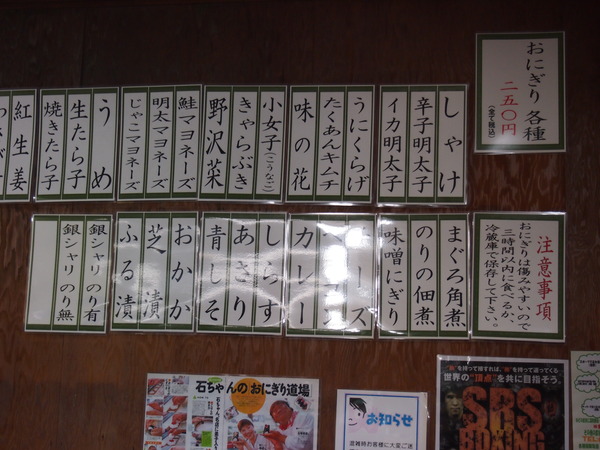 おにぎり 各種
二五〇円
(全て税込)
しゃけ
辛子明太子
イカ明太子
うにくらげ
たくあんキムチ
味の花
小女子(こうなご)
きゃらぶき
野沢菜
鮭マヨネーズ
明太マヨネーズ
じゃこマヨネーズ
うめ
生たら子
焼きたら子
紅生姜
注意事項
おにぎりは傷みやすいので
三時間以内に食べるか、
冷蔵庫で保存して下さい。
まぐろ角煮
のりの佃煮
味噌にぎり
チーズ
カレー
しらす
あさり
青しそ
おかか
芝漬
ふる漬
銀シャリ のり有
銀シャリ のり無
石ちゃんのおにぎり道場
お知らせ
混雑時お客様に大変ご迷
世界の"頂点"を共に目指そう。
SRS
BOXING